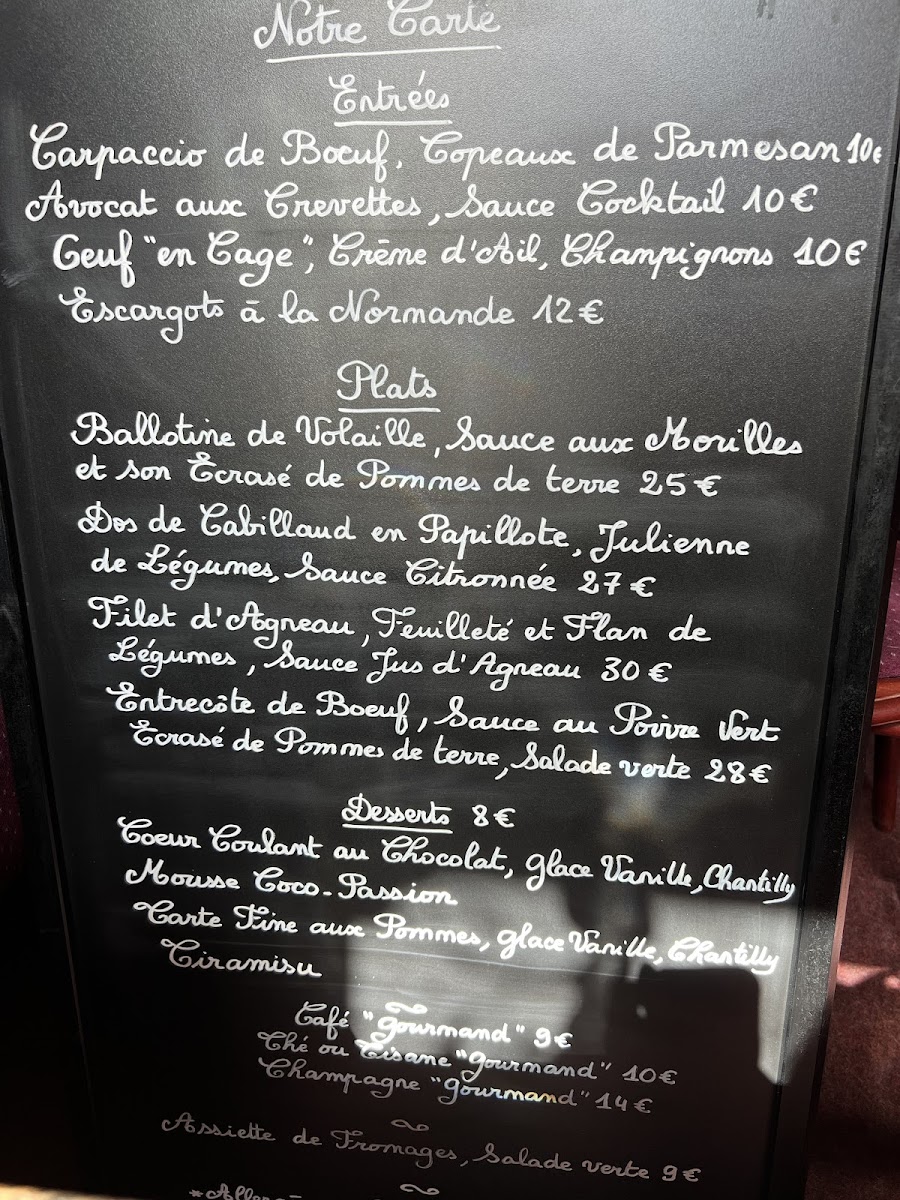 Notre Carte
Entrées
Carpaccio de Boeuf, Copeaux de Parmesan 10€
Avocat aux Crevettes, Sauce Cocktail 10€
Oeuf "en Cage", Crème d'Ail, Champignons 10€
Escargots à la Normande 12€
Plats
Ballotine de Volaille, Sauce aux Morilles
et son Écrasé de Pommes de terre 25€
Dos de Cabillaud en Papillote, Julienne
de Légumes, Sauce Citronnée 27€
Filet d'Agneau, Feuilleté et Flan de
Légumes, Sauce Jus d'Agneau 30€
Entrecôte de Boeuf, Sauce au Poivre Vert
Écrasé de Pommes de terre, Salade verte 28€
Desserts 8€
Coeur Coulant au Chocolat, glace Vanille, Chantilly
Mousse Coco-Passion
Tarte Fine aux Pommes, glace Vanille, Chantilly
Tiramisu
Café "gourmand" 9€
Thé ou Tisane "gourmand" 10€
Champagne "gourmand" 14€
Assiette de Fromages, Salade verte 9€